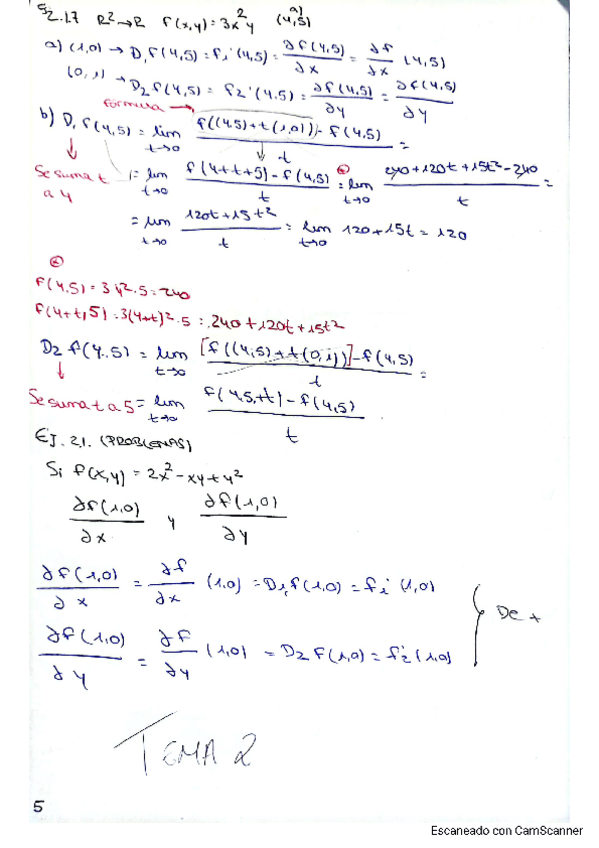 §2.17 R²→R f(x,y)=3x²y (4,5)
a)
a) (1,0) → D₁f(4,5) = f₁'(4,5) = ∂f(4,5)/∂x = ∂f/∂x (4,5)
(0,1) → D₂f(4,5) = f₂'(4,5) = ∂f(4,5)/∂y = ∂f(4,5)/∂y
fórmula →
b) D₁f(4,5) = lim t→0 f((4,5)+t(1,0)) - f(4,5) / t =
Se suma t a 4
= lim t→0 f(4+t+5) - f(4,5) / t = lim t→0 240+120t+15t²-240 / t =
= lim t→0 120t+15t² / t = lim t→0 120+15t = 120
f(4,5) = 3·4²·5 = 240
f(4+t,5) = 3(4+t)²·5 = 240+120t+15t²
D₂f(4,5) = lim t→0 [f((4,5)+t(0,1))] - f(4,5) / t =
Se suma t a 5 = lim t→0 f(4,5+t) - f(4,5) / t
EJ. 2.1. (PROBLEMAS)
Si f(x,y) = 2x² - xy + y²
∂f(1,0)/∂x y ∂f(1,0)/∂y
∂f(1,0)/∂x = ∂f/∂x (1,0) = D₁f(1,0) = f₁'(1,0)
De +
∂f(1,0)/∂y = ∂f/∂y (1,0) = D₂f(1,0) = f₂'(1,0)
TEMA 2
5
Escaneado con CamScanner